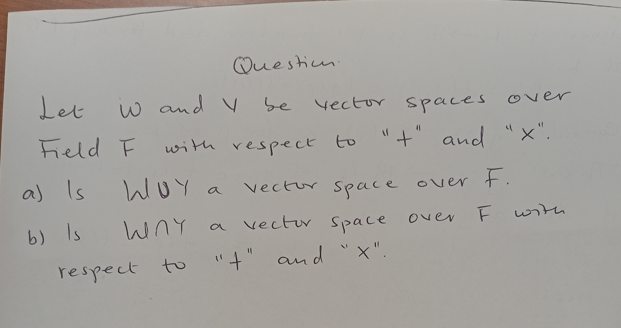 Question
Let W and V be vector spaces over
Field F with respect to "+" and "x".
a) Is W∪Y a vector space over F.
b) Is W∩Y a vector space over F with
respect to "+" and "x".